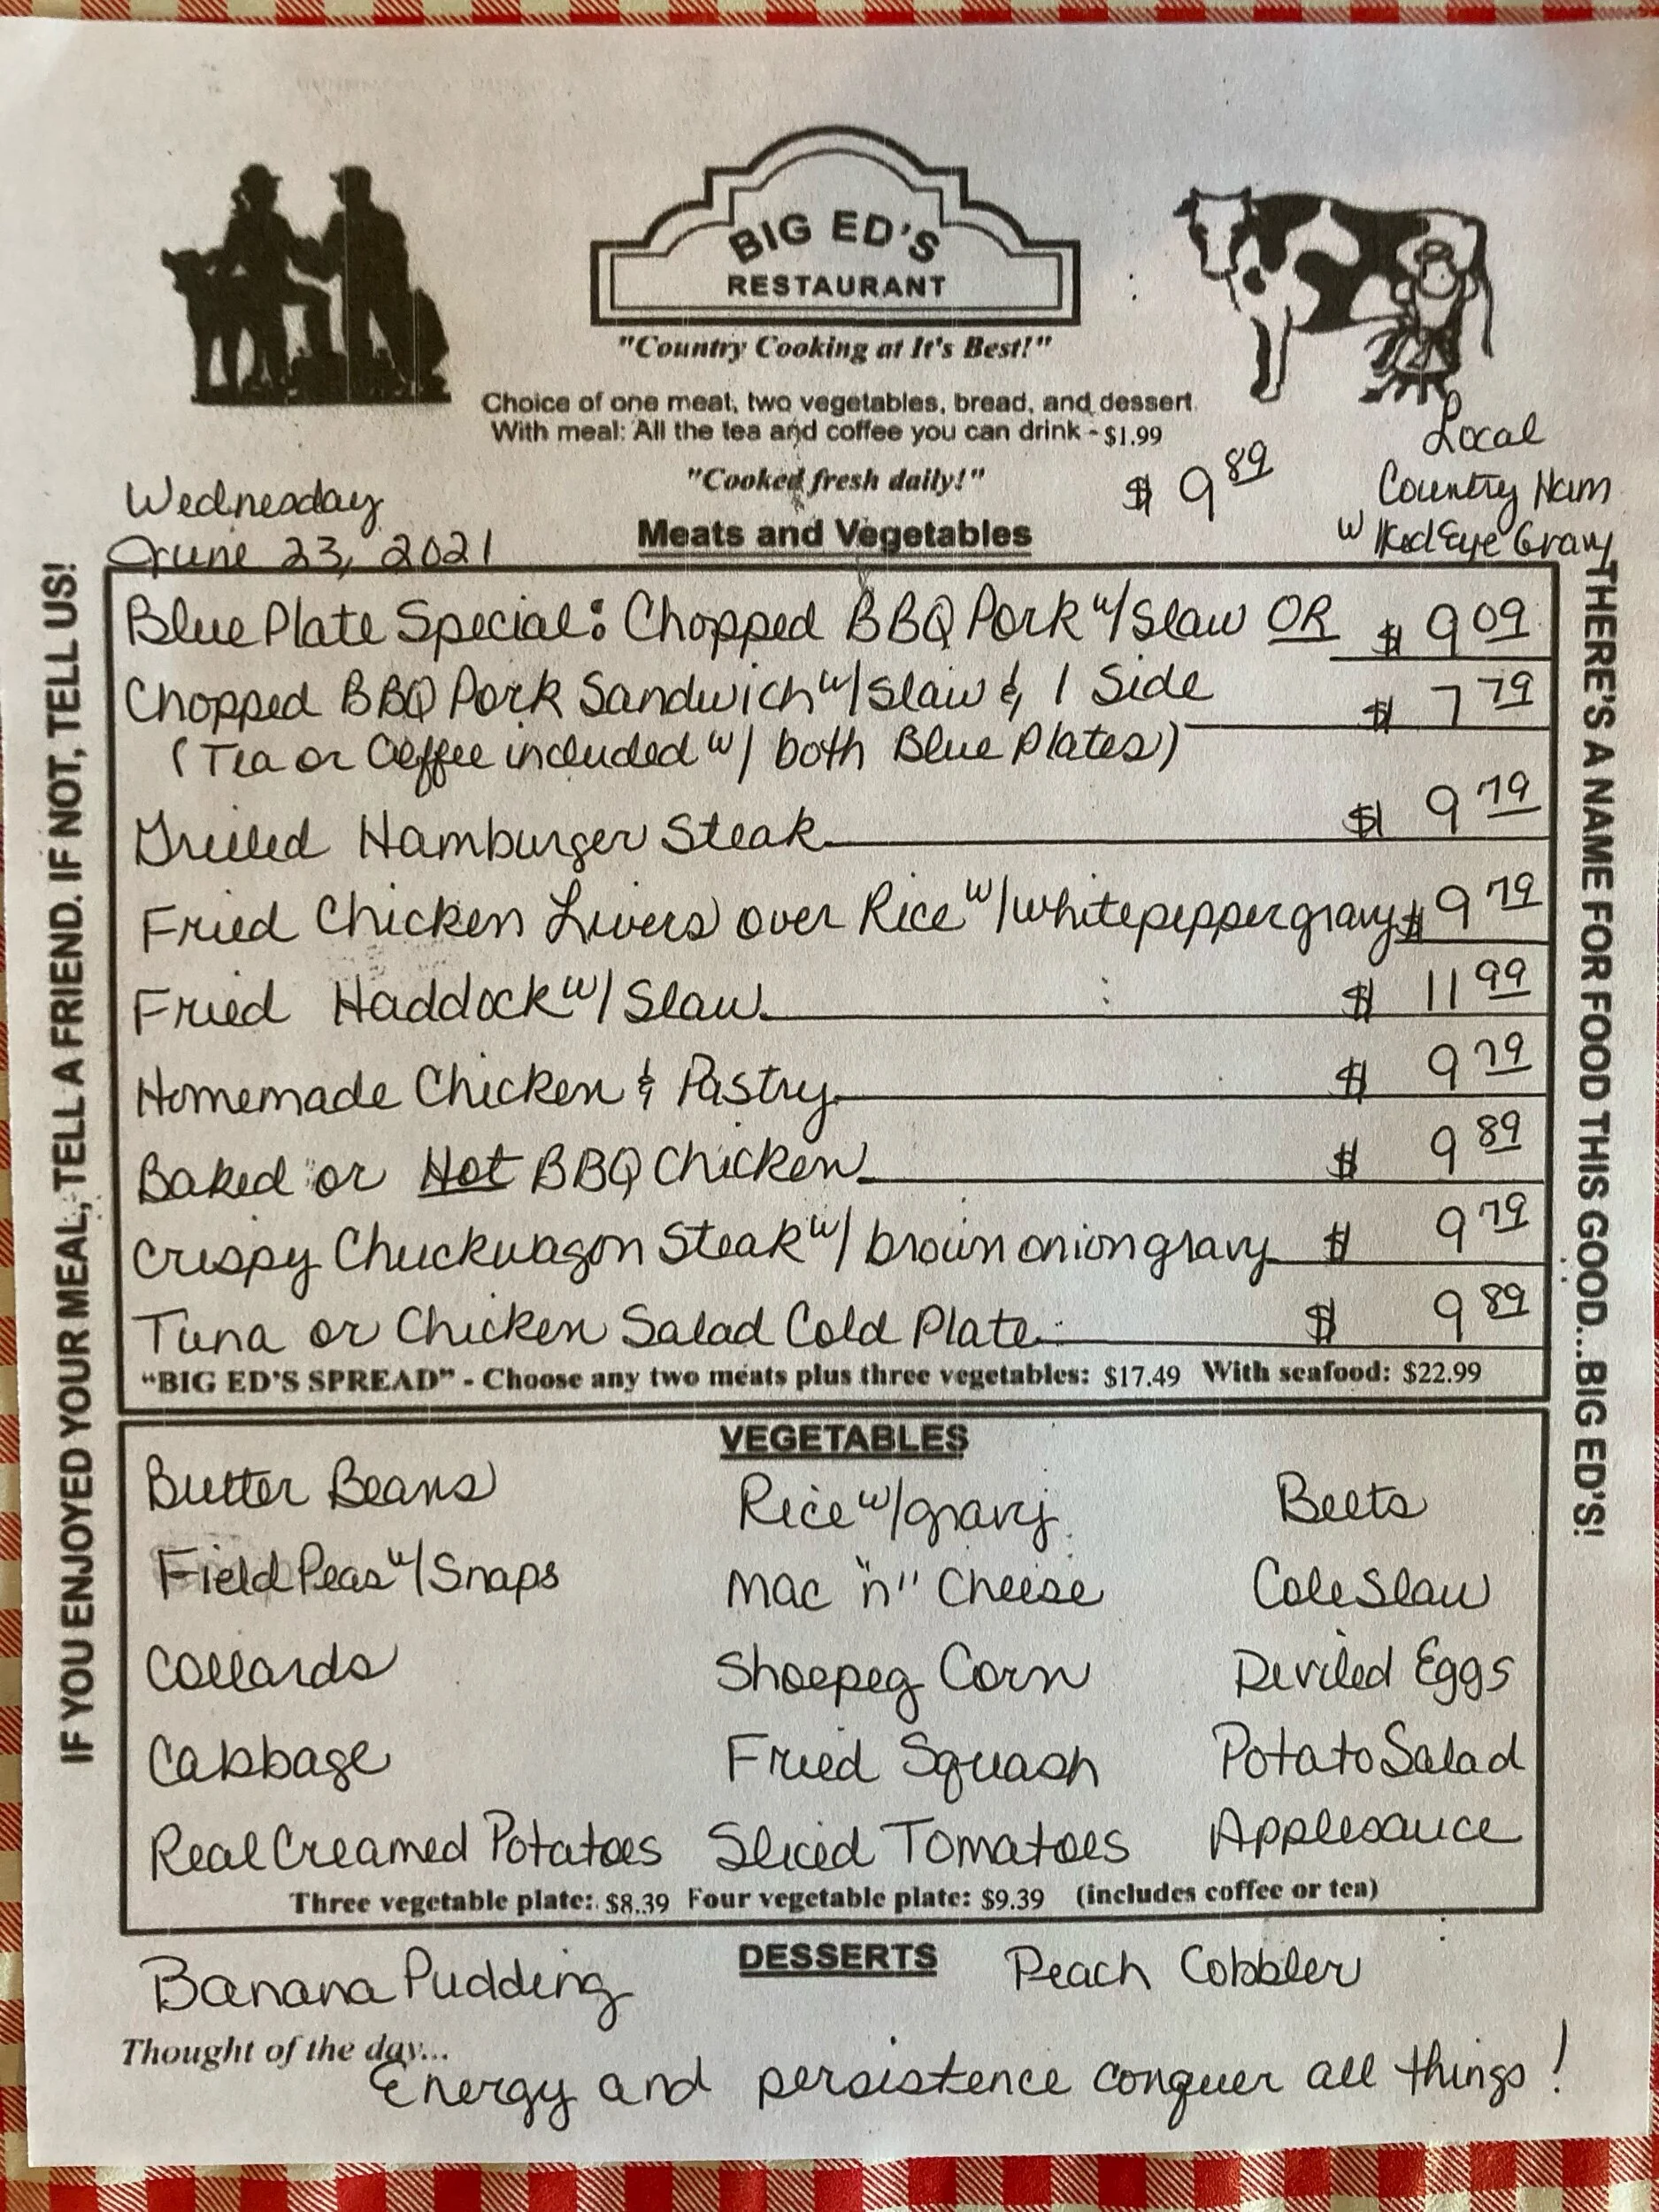 BIG ED'S
RESTAURANT
"Country Cooking at It's Best!"
Choice of one meat, two vegetables, bread, and dessert
With meal: All the tea and coffee you can drink - $1.99
"Cooked fresh daily!"
$ 9 89
Local
Country Ham
w Red Eye Gravy
Wednesday
June 23, 2021
Meats and Vegetables
Blue Plate Special: Chopped BBQ Pork w/ Slaw OR $ 9 09
Chopped BBQ Pork Sandwich w/ Slaw & 1 Side $ 7 79
(Tea or Coffee included w/ both Blue Plates)
Grilled Hamburger Steak $ 9 79
Fried Chicken Livers over Rice w/ white pepper gravy $ 9 79
Fried Haddock w/ Slaw $ 11 99
Homemade Chicken & Pastry $ 9 79
Baked or Hot BBQ Chicken $ 9 89
Crispy Chuckwagon Steak w/ brown onion gravy $ 9 79
Tuna or Chicken Salad Cold Plate $ 9 89
"BIG ED'S SPREAD" - Choose any two meats plus three vegetables: $17.49 With seafood: $22.99
VEGETABLES
Butter Beans Rice w/ gravy Beets
Field Peas w/ Snaps Mac "n" Cheese Cole Slaw
Collards Shoepeg Corn Deviled Eggs
Cabbage Fried Squash Potato Salad
Real Creamed Potatoes Sliced Tomatoes Applesauce
Three vegetable plate: $8.39 Four vegetable plate: $9.39 (includes coffee or tea)
DESSERTS
Banana Pudding Peach Cobbler
Thought of the day...
Energy and persistence conquer all things!
IF YOU ENJOYED YOUR MEAL, TELL A FRIEND. IF NOT, TELL US!
THERE'S A NAME FOR FOOD THIS GOOD...BIG ED'S!